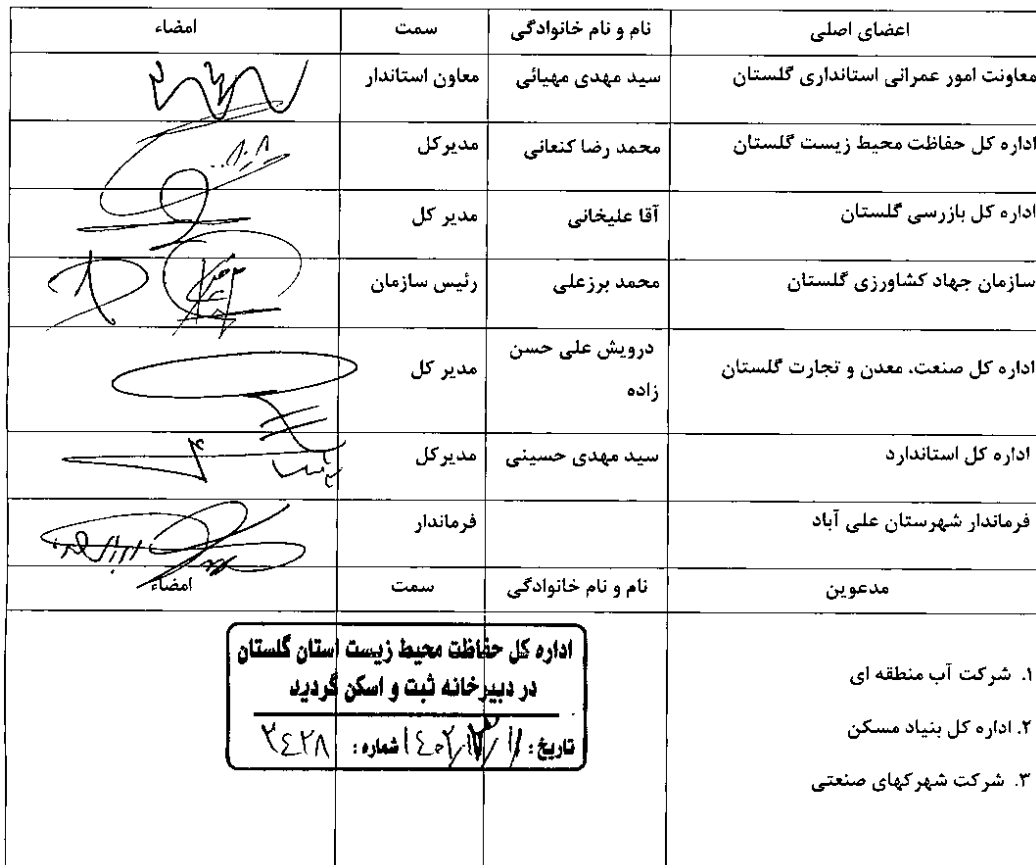 اعضای اصلی نام و نام خانوادگی سمت امضاء
معاونت امور عمرانی استانداری گلستان سید مهدی مهیائی معاون استاندار
اداره کل حفاظت محیط زیست گلستان محمد رضا کنعانی مدیرکل
اداره کل بازرسی گلستان آقا علیخانی مدیر کل
سازمان جهاد کشاورزی گلستان محمد برزعلی رئیس سازمان
اداره کل صنعت، معدن و تجارت گلستان درویش علی حسن مدیر کل
زاده
اداره کل استاندارد سید مهدی حسینی مدیرکل
فرماندار شهرستان علی آباد فرماندار
مدعوین نام و نام خانوادگی سمت امضاء
۱. شرکت آب منطقه ای
۲. اداره کل بنیاد مسکن
۳. شرکت شهرکهای صنعتی
اداره کل حفاظت محیط زیست استان گلستان
در دبیرخانه ثبت و اسکن گردید
تاریخ : شماره : ۲۴۲۸